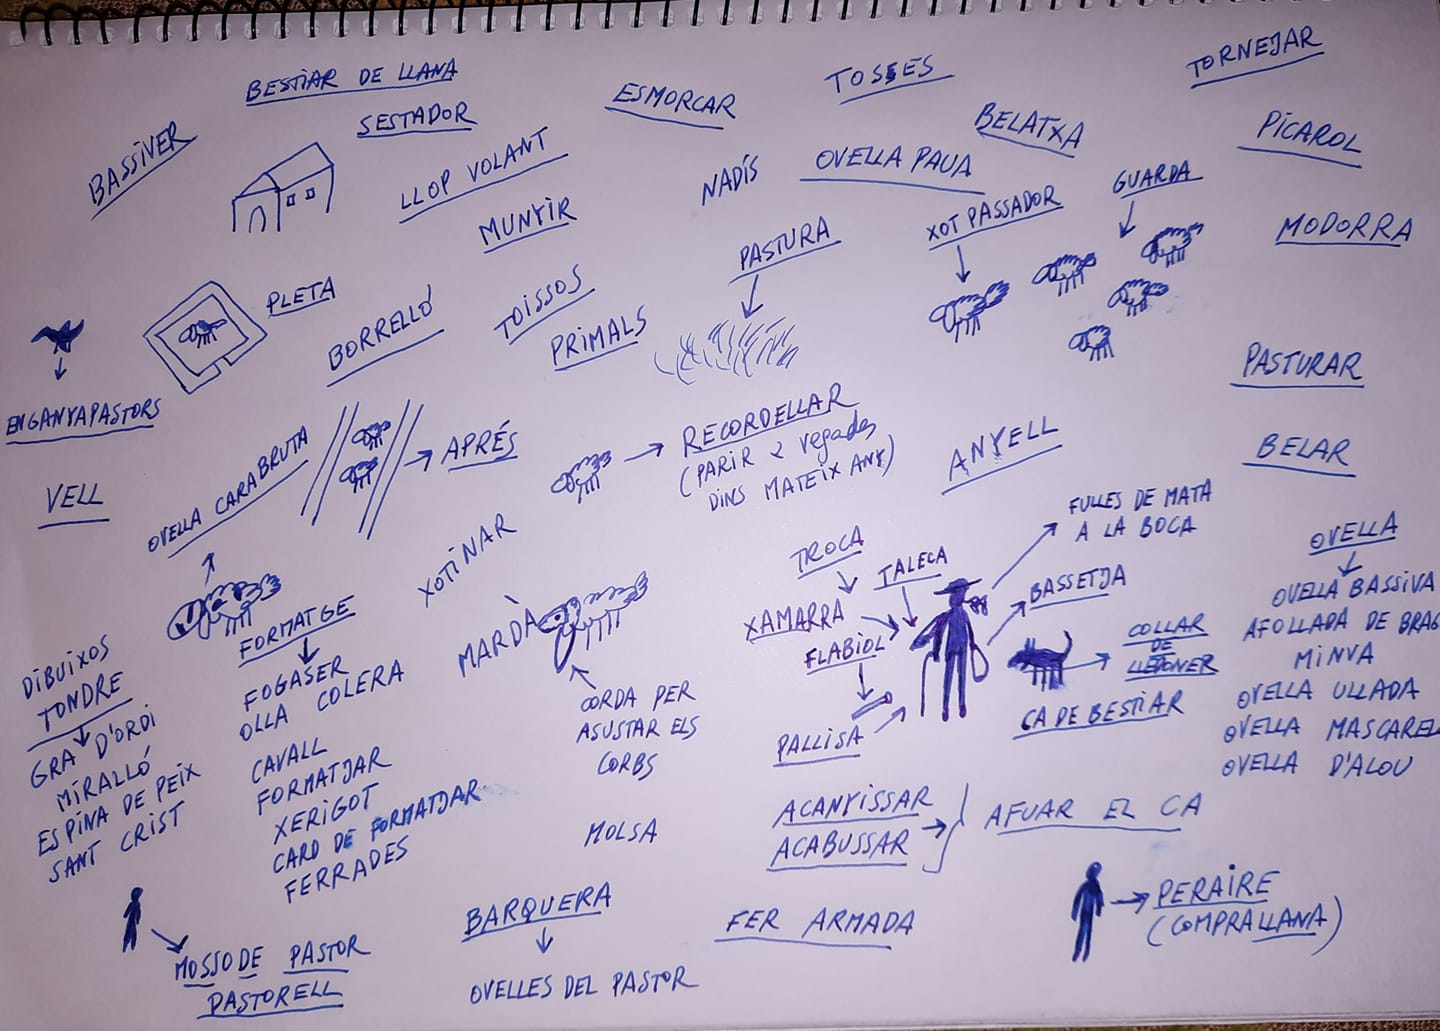 BESTIAR DE LLANA
TOSSES
TORNEJAR
BASSIVER
SESTADOR
ESMORCAR
BELATXA
PICAROL
LLOP VOLANT
NADÍS
OVELLA PAUA
GUARDA
MUNYIR
XOT PASSADOR
MODORRA
PASTURA
PLETA
BORRELLÓ
TOISSOS
PRIMALS
ENGANYAPASTORS
PASTURAR
VELL
OVELLA CARABRUTA
APRÉS
RECORDELLAR
(PARIR 2 vegades
DINS MATEIX ANY)
ANYELL
BELAR
XOTINAR
MARDÀ
CORDA PER
ASUSTAR ELS
CORBS
TROCA
TALECA
XAMARRA
FLABIOL
PALLISA
FULLES DE MATA
A LA BOCA
BASSETJA
COLLAR
DE
LLEDONER
CA DE BESTIAR
OVELLA
OVELLA BASSIVA
AFOLLADA DE BRAG
MINVA
OVELLA ULLADA
OVELLA MASCARELL
OVELLA D'ALOU
DIBUIXOS
TONDRE
GRA D'ORDI
MIRALLÓ
ESPINA DE PEIX
SANT CRIST
FORMATGE
FOGASER
OLLA COLERA
CAVALL
FORMATJAR
XERIGOT
CARD DE FORMATJAR
FERRADES
MOLSA
ACANYISSAR
ACABUSSAR
AFUAR EL CA
MOSSO DE PASTOR
PASTORELL
BARQUERA
OVELLES DEL PASTOR
FER ARMADA
PERAIRE
(COMPRA LLANA)